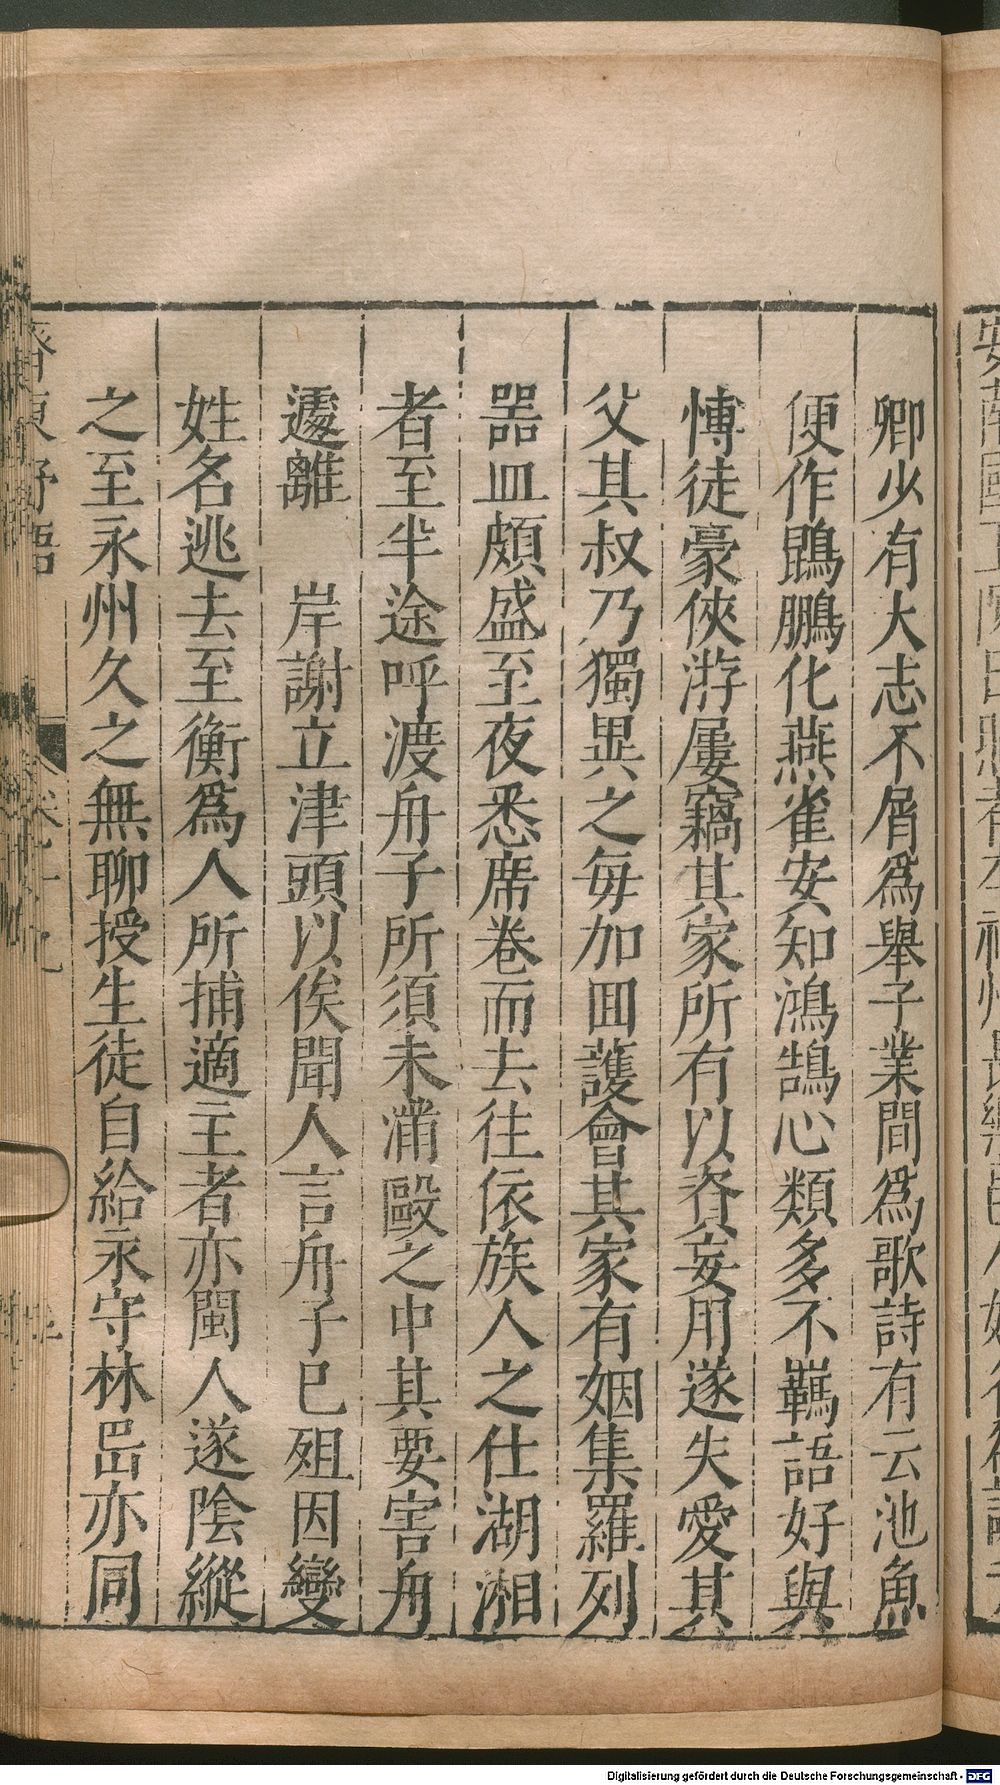 卿少有大志不屑爲舉子業間爲歌詩有云池魚
便作鵾鵬化燕雀安知鴻鵠心類多不羈語好與
博徒豪俠游屢竊其家所有以資妄用遂失愛其
父其叔乃獨異之每加回護會其家有姻集羅列
器皿頗盛至夜悉席卷而去往依族人之仕湖湘
者至半途呼渡舟子所須未滿毆之中其要害舟
遽離 岸謝立津頭以俟聞人言舟子已殂因變
姓名逃去至衡爲人所捕適主者亦閩人遂陰縱
之至永州久之無聊授生徒自給永守林岊亦同
齊東野語
Digitalisierung gefördert durch die Deutsche Forschungsgemeinschaft - DFG